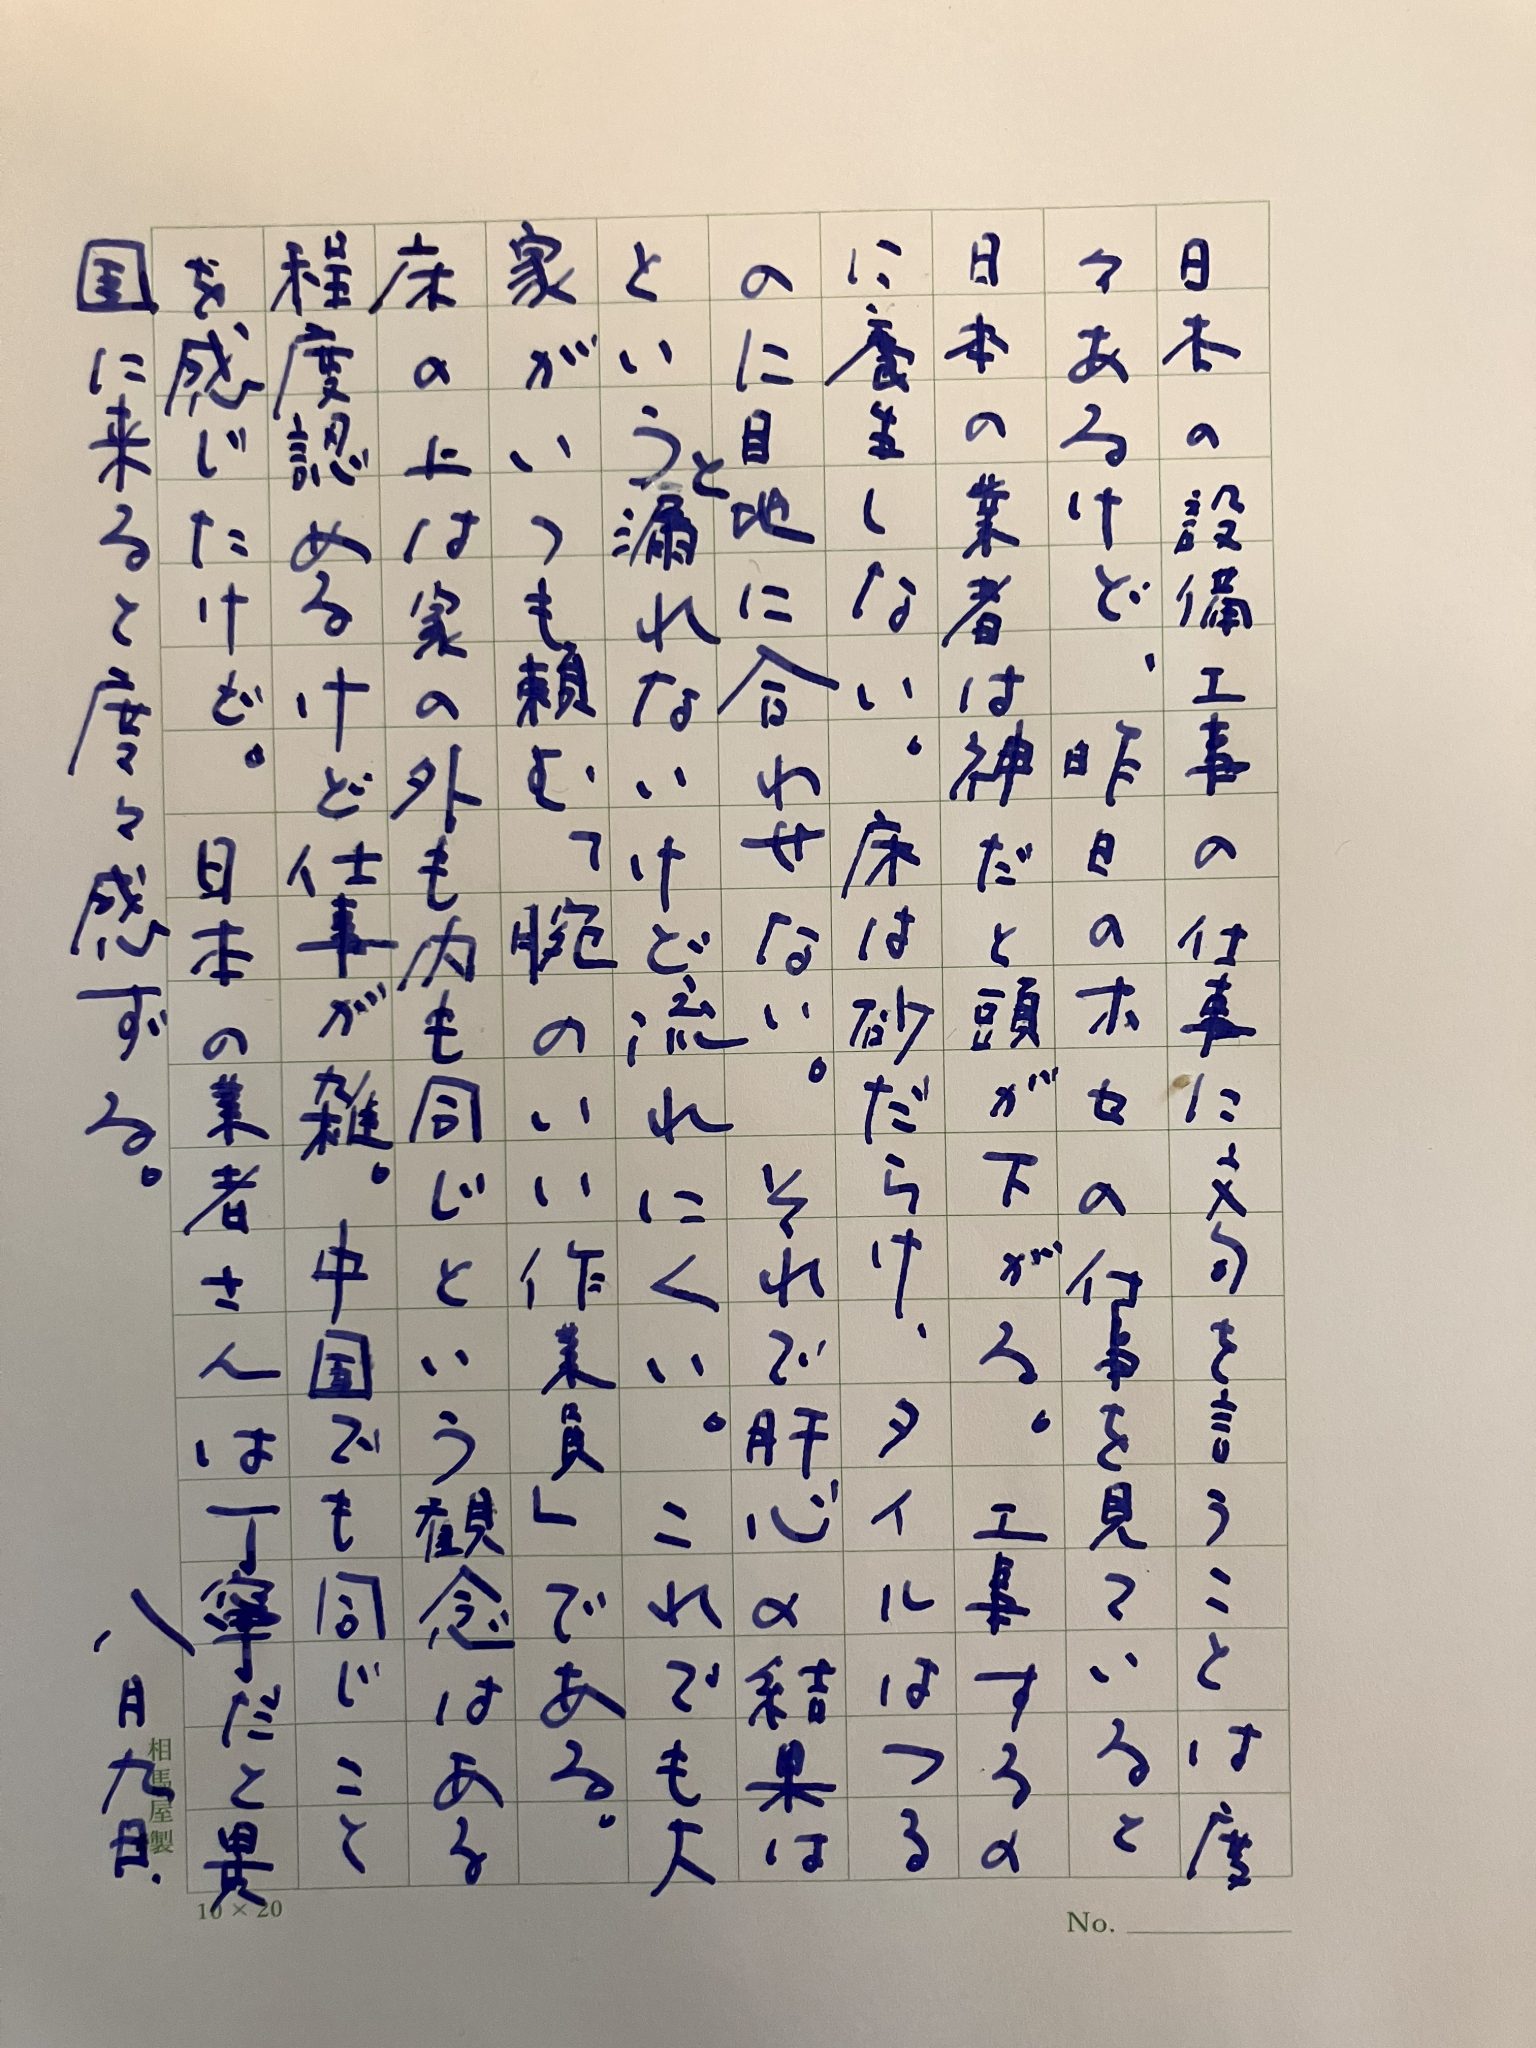 日本の設備工事の仕事に文句を言うことは度
々あるけど、昨日のホセの仕事を見ていると
日本の業者は神だと頭が下がる。工事するの
に養生しない。床は砂だらけ、タイルはつる
のに目地に合わせない。それで肝心の結果は
というと漏れないけど流れにくい。これでも大
家がいつも頼む、「腕のいい作業員」である。
床の上は家の外も内も同じという観念はある
程度認めるけど仕事が雑。中国でも同じこと
を感じたけど。日本の業者さんは丁寧だと異
国に来ると度々感ずる。 八月九日.
相馬屋製
10×20
No.